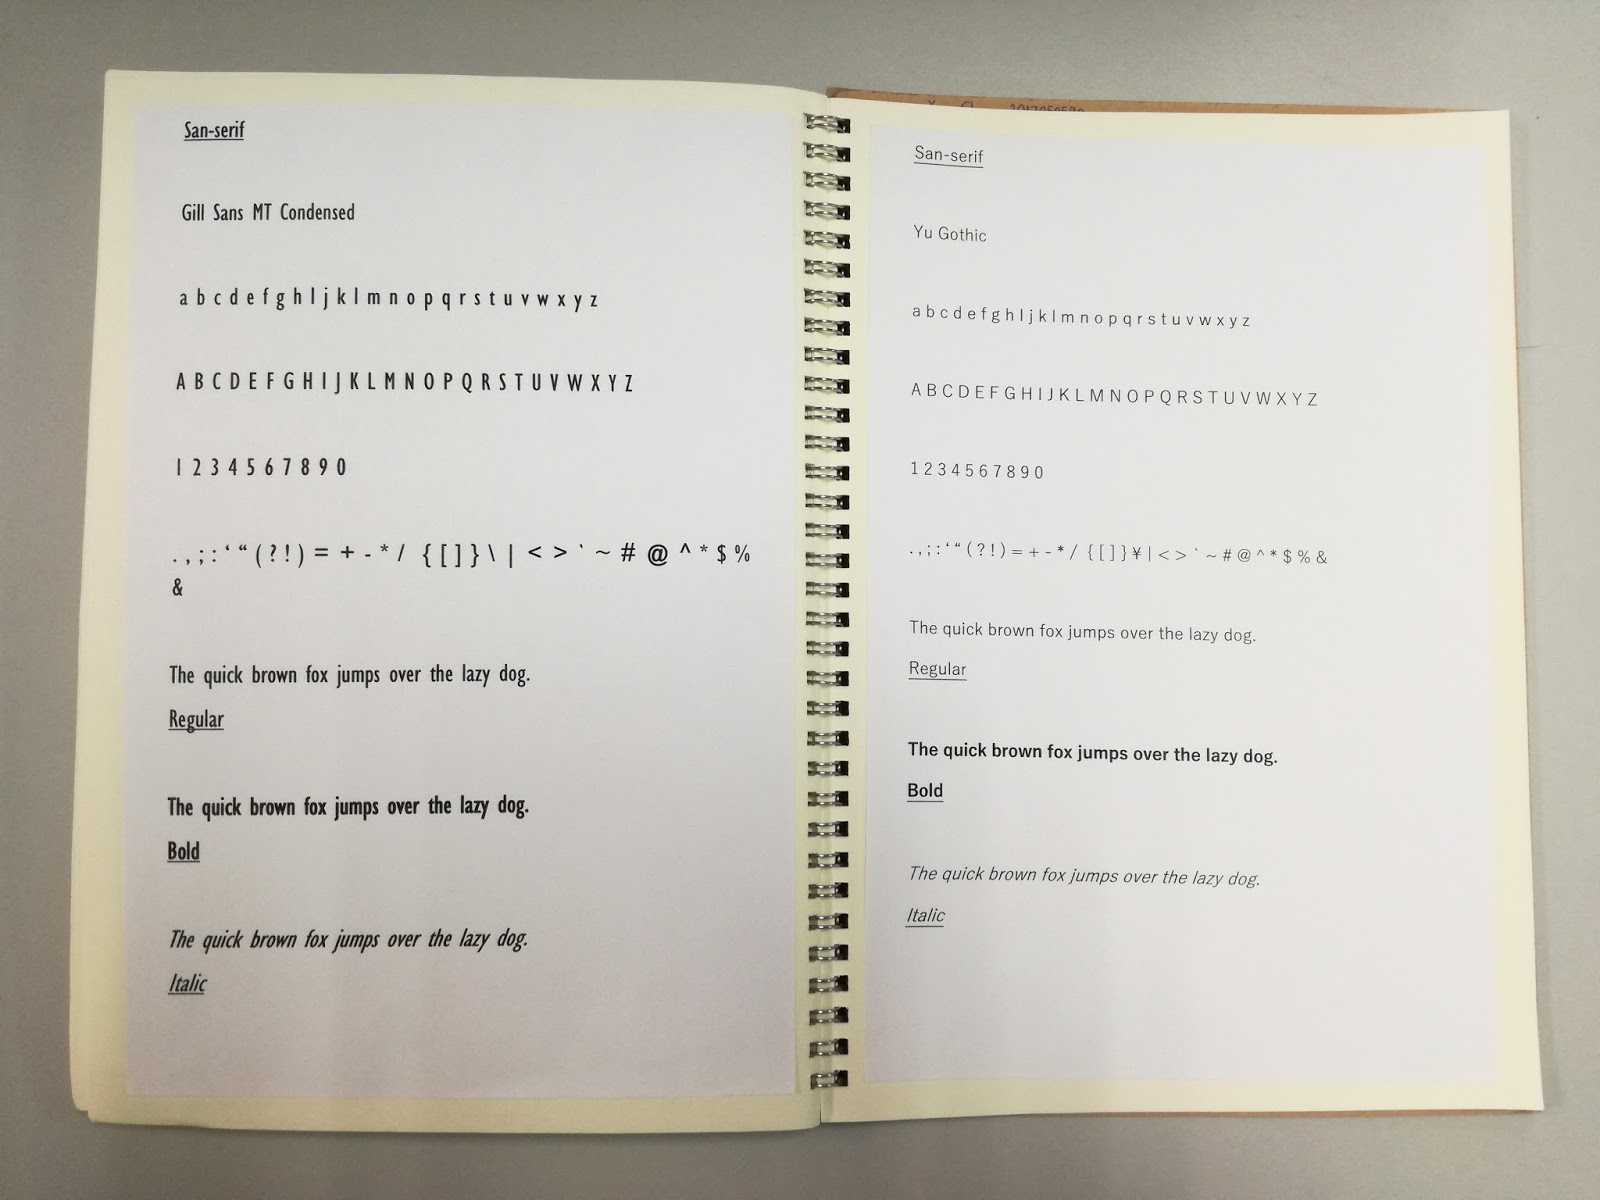 San-serif
Gill Sans MT Condensed
a b c d e f g h I j k l m n o p q r s t u v w x y z
A B C D E F G H I J K L M N O P Q R S T U V W X Y Z
1 2 3 4 5 6 7 8 9 0
. , ; : ‘ “ ( ? ! ) = + - * / { [ ] } \ | < > ` ~ # @ ^ * $ %
&
The quick brown fox jumps over the lazy dog.
Regular
The quick brown fox jumps over the lazy dog.
Bold
The quick brown fox jumps over the lazy dog.
Italic
San-serif
Yu Gothic
a b c d e f g h I j k l m n o p q r s t u v w x y z
A B C D E F G H I J K L M N O P Q R S T U V W X Y Z
1 2 3 4 5 6 7 8 9 0
. , ; : ‘ “ ( ? ! ) = + - * / { [ ] } ¥ | < > ` ~ # @ ^ * $ % &
The quick brown fox jumps over the lazy dog.
Regular
The quick brown fox jumps over the lazy dog.
Bold
The quick brown fox jumps over the lazy dog.
Italic